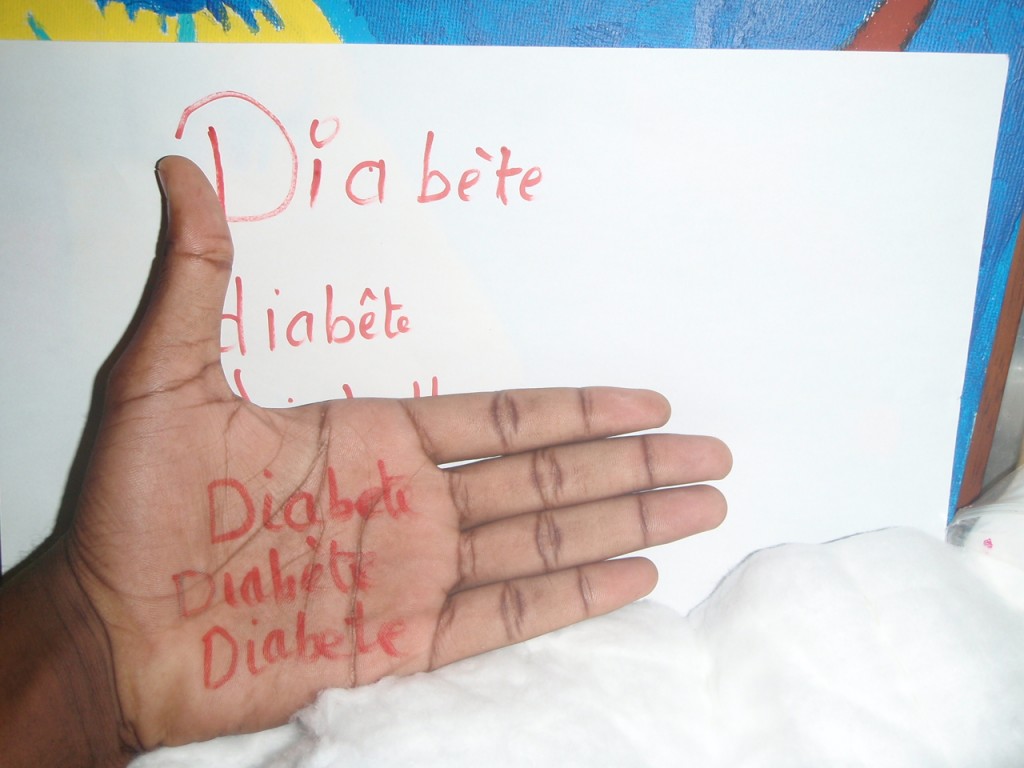 Diabète
diabête
Diabete
Diabète
Diabete